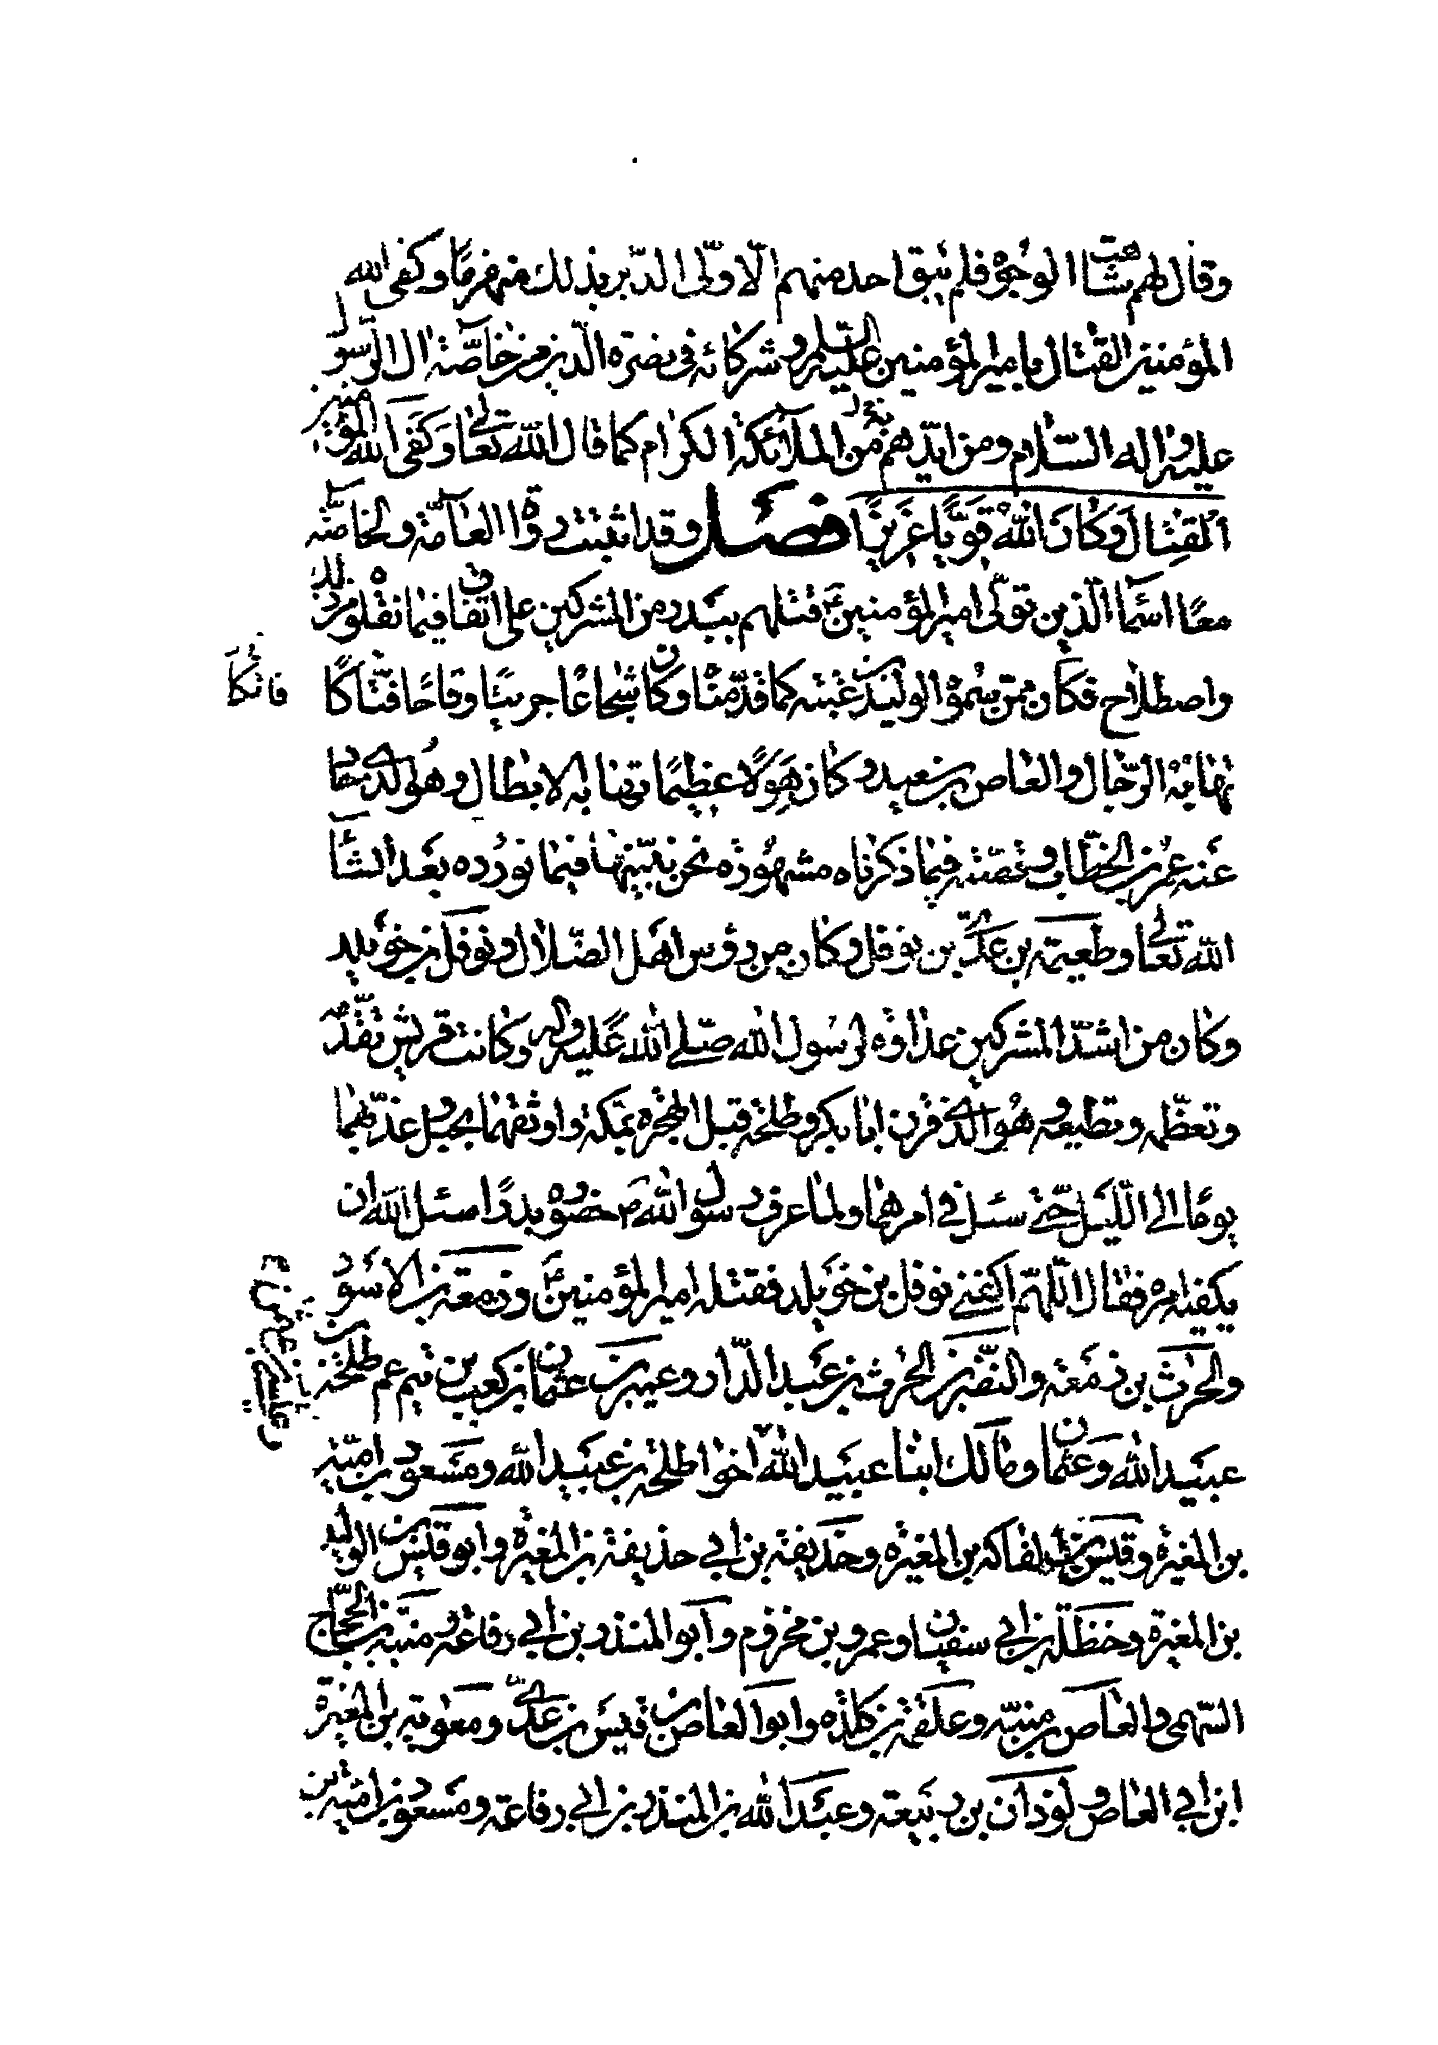 وقال لهم شاهت الوجوه فلم يبق احد منهم الا ولى الدبر بذلك منهزما وكفى الله
المؤمنين القتال بامير المؤمنين عليه السلم وشركائه في نصرة الدين من خاصة ال الرسول
عليه واله السلام ومن ايدهم به من الملائكة الكرام كما قال الله تعالى وكفى الله المؤمنين
القتال وكان الله قويا عزيزا فصل وقد اثبتت رواة العامة والخاصة
معا اسماء الذين تولى امير المؤمنين ع قتلهم ببدر من المشركين على اتفاق فيما نقلوه من ذلك
واصطلاح فكان ممن سموه الوليد بن عتبة كما قدمناه وكان شجاعا جريئا وقاحا فتاكا
فاتكا
تهابه الرجال والعاص بن سعيد وكان هولا عظيما تهابه الابطال وهو الذي حاد
عنه عمر بن الخطاب وقصته فيما ذكرناه مشهورة نحن نبينها فيما نورده بعد انشاء
الله تعالى وطعيمة بن عدي بن نوفل وكان من رؤس اهل الضلال ونوفل بن خويلد
وكان من اشد المشركين عداوة لرسول الله صلى الله عليه واله وكانت قريش تقدمه
وتعظمه وتطيعه وهو الذي قرن ابا بكر وطلحة قبل الهجرة بمكة واوثقهما بحبل وعذبهما
يوما الى الليل حتى سئل في امرهما ولما عرف رسول الله ص حضوره بدرا سئل الله ان
يكفيه امره فقال اللهم اكفني نوفل بن خويلد فقتله امير المؤمنين ع وزمعة بن الاسود
والحرث بن زمعة والنضر بن الحرث بن عبد الدار وعمير بن عثمان بن كعب بن تيم عم طلحة بن
عبيد الله وعثمان ومالك ابنا عبيد الله اخوا طلحة بن عبيد الله ومسعود بن امية
بن المغيرة وقيس بن الفاكه بن المغيرة وحذيفة بن ابي حذيفة بن المغيرة وابو قيس بن الوليد
بن المغيرة وحنظلة بن ابي سفين وعمرو بن مخزوم وابو المنذر بن ابي رفاعة ومنبه بن الحجاج
السهمي والعاص بن منبه وعلقمة بن كلدة وابو العاص بن قيس بن عدي ومعوية بن المغيرة
ابن ابي العاص ولوذان بن ربيعة وعبد الله بن المنذر بن ابي رفاعة ومسعود بن امية بن